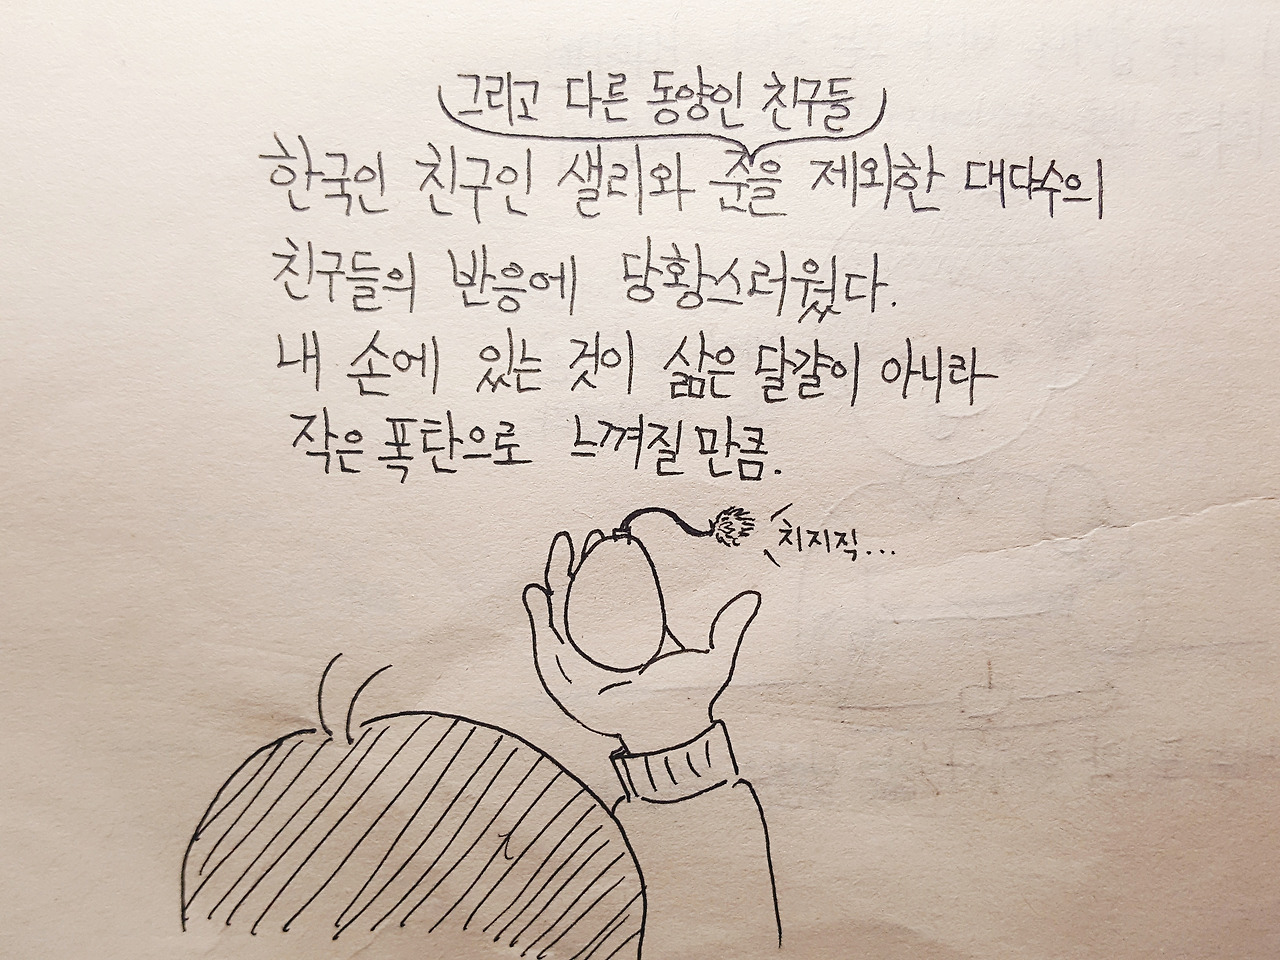 그리고 다른 동양인 친구들
한국인 친구인 샐리와 준을 제외한 대다수의
친구들의 반응에 당황스러웠다.
내 손에 있는 것이 삶은 달걀이 아니라
작은 폭탄으로 느껴질 만큼.
치지직...